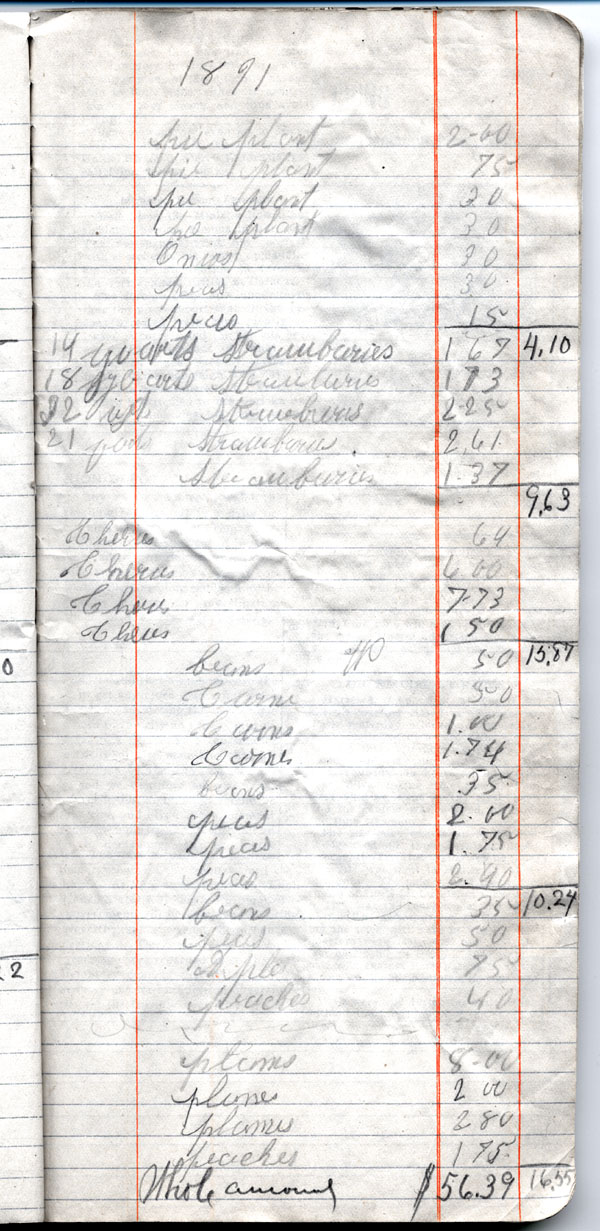 1891
pie plant 2.00
pie plant 75
pie plant 30
pie plant 30
Onios 30
peas 30
peas 15
14 quarts Strambaries 1 67 4.10
18 quarts Stramburies 1 73
22 Stramburis 2.25
21 Stramburis 2.61
Stramburies 1.37
9.63
Cheries 64
Cheries 6 00
Cheries 7.73
Cheries 1 50
beans 50 15.87
Carne 50
Corns 1.00
Cornes 1.74
beans 35
peas 2.00
peas 1.75
peas 2.40
beans 35 10.24
peas 50
Aples 75
peaches 40
plams 8.00
plumes 2 00
plumes 2 80
peaches 1 75
Whole amount $56.39 16.55